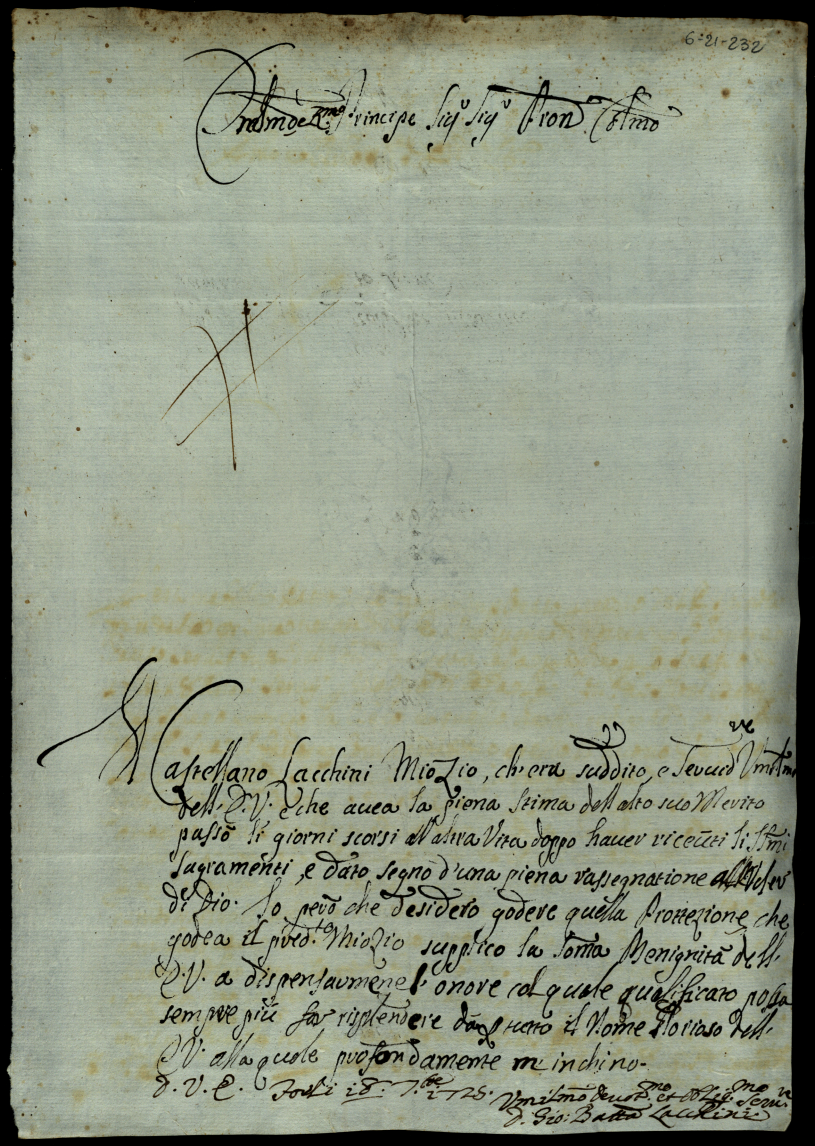 6-21-232
Emmo e Rmo Principe Sigr Sigr Pron Colmo
Il Castellano Lacchini Mio Zio, ch'era suddito, e Servre Umilmo
dell'E.V. e che avea la piena stima dell'alto suo Merito
passò li giorni scorsi all'altra Vita doppo haver riceuti li SSmi
sagramenti, e dato segno d'una piena rassegnatione al Voler
di Dio. Io però che desidero godere quella Prottezione, che
godea il predto Mio Zio supplico la somma Benignità dell'
E.V. a dispensarmene l'onore col quale qualificato possa
sempre più far risplendere da tutto il Nome Glorioso dell'
E.V. alla quale profondamente m'inchino.
D.V.E. Forlì 18. 7bre 1725.
Umilmo Devotmo et Obligmo Servre
D. Gio: Batta Lacchini